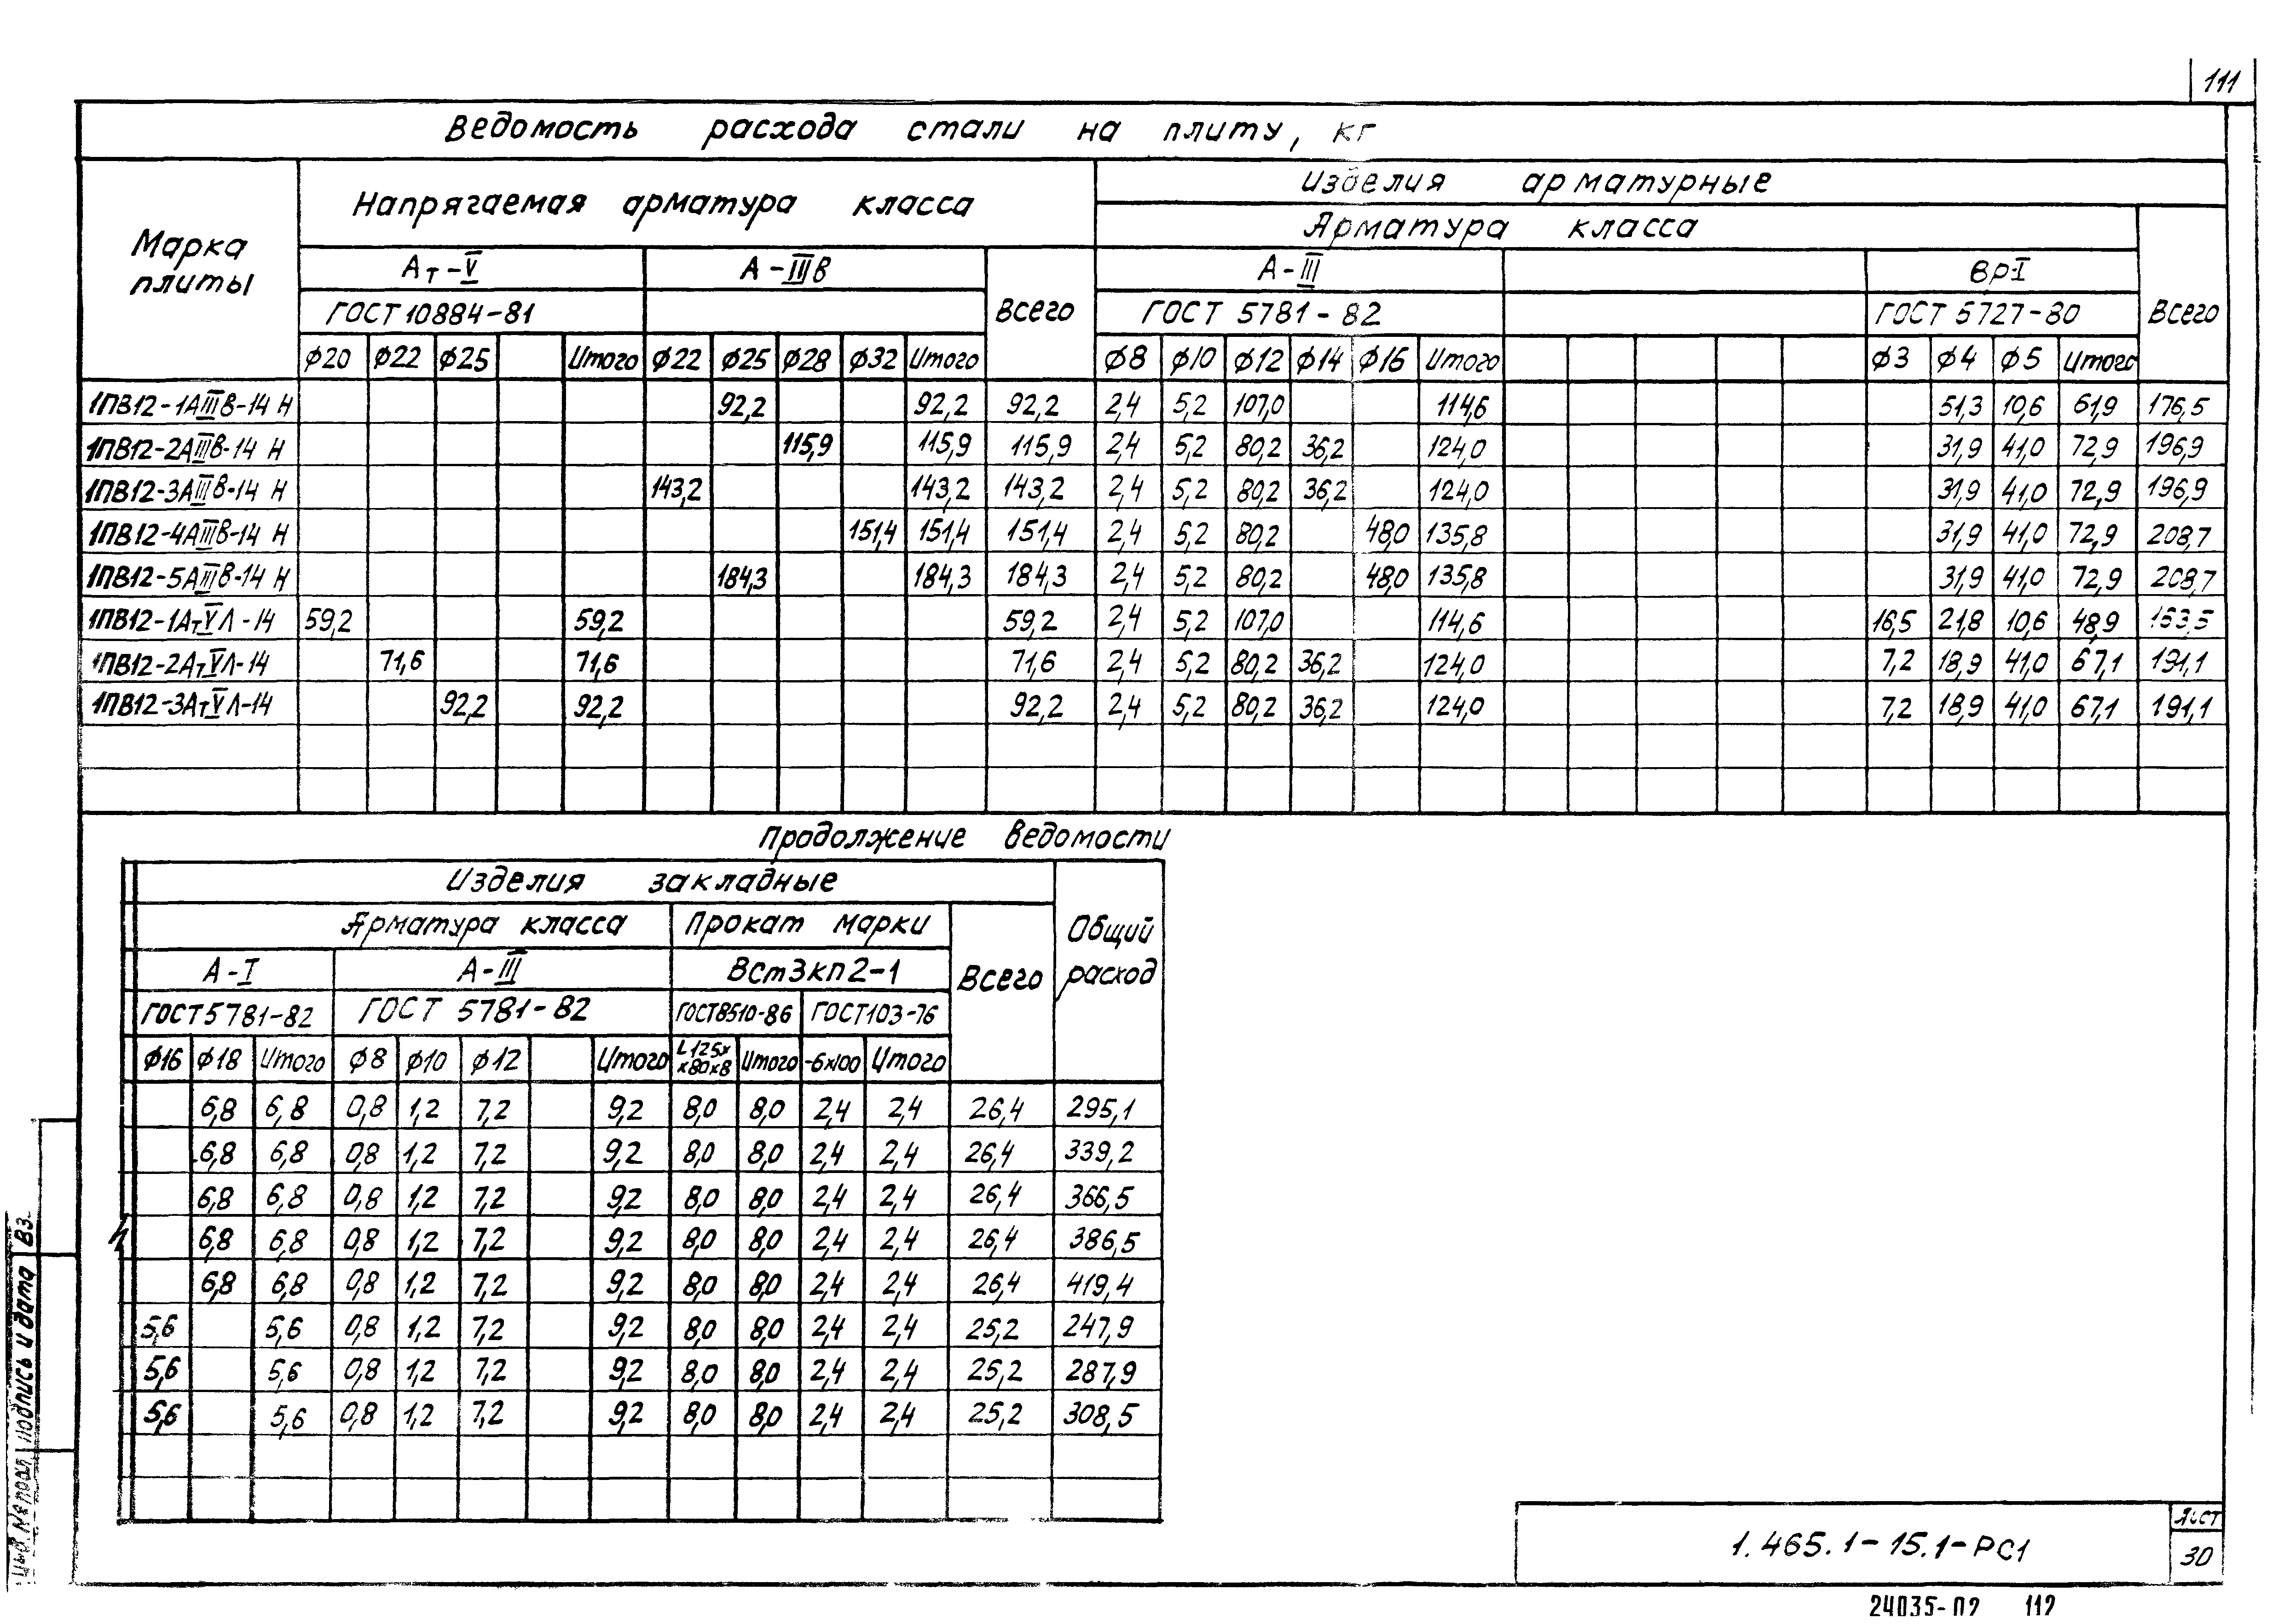 111
Ведомость расхода стали на плиту, кг
Марка плиты
Напрягаемая арматура класса
Изделия арматурные
Арматура класса
Ат-V А-IIIв Всего А-III ВрI Всего
ГОСТ 10884-81 ГОСТ 5781-82 ГОСТ 5727-80
ф20 ф22 ф25 Итого ф22 ф25 ф28 ф32 Итого ф8 ф10 ф12 ф14 ф16 Итого ф3 ф4 ф5 Итого
1ПВ12-1АIIIв-14 Н 92,2 92,2 92,2 2,4 5,2 107,0 114,6 51,3 10,6 61,9 176,5
1ПВ12-2АIIIв-14 Н 115,9 115,9 115,9 2,4 5,2 80,2 36,2 124,0 31,9 41,0 72,9 196,9
1ПВ12-3АIIIв-14 Н 143,2 143,2 143,2 2,4 5,2 80,2 36,2 124,0 31,9 41,0 72,9 196,9
1ПВ12-4АIIIв-14 Н 151,4 151,4 151,4 2,4 5,2 80,2 48,0 135,8 31,9 41,0 72,9 208,7
1ПВ12-5АIIIв-14 Н 184,3 184,3 184,3 2,4 5,2 80,2 48,0 135,8 31,9 41,0 72,9 208,7
1ПВ12-1АтVЛ-14 59,2 59,2 59,2 2,4 5,2 107,0 114,6 16,5 21,8 10,6 48,9 163,5
1ПВ12-2АтVЛ-14 71,6 71,6 71,6 2,4 5,2 80,2 36,2 124,0 7,2 18,9 41,0 67,1 191,1
1ПВ12-3АтVЛ-14 92,2 92,2 92,2 2,4 5,2 80,2 36,2 124,0 7,2 18,9 41,0 67,1 191,1
Продолжение ведомости
Изделия закладные
Общий расход
Арматура класса Прокат марки Всего
А-I А-III ВСт3кп2-1
ГОСТ 5781-82 ГОСТ 5781-82 ГОСТ 8510-86 ГОСТ 103-76
ф16 ф18 Итого ф8 ф10 ф12 Итого L125х х80х8 Итого -6х100 Итого
6,8 6,8 0,8 1,2 7,2 9,2 8,0 8,0 2,4 2,4 26,4 295,1
6,8 6,8 0,8 1,2 7,2 9,2 8,0 8,0 2,4 2,4 26,4 339,2
6,8 6,8 0,8 1,2 7,2 9,2 8,0 8,0 2,4 2,4 26,4 366,5
6,8 6,8 0,8 1,2 7,2 9,2 8,0 8,0 2,4 2,4 26,4 386,5
6,8 6,8 0,8 1,2 7,2 9,2 8,0 8,0 2,4 2,4 26,4 419,4
5,6 5,6 0,8 1,2 7,2 9,2 8,0 8,0 2,4 2,4 25,2 247,9
5,6 5,6 0,8 1,2 7,2 9,2 8,0 8,0 2,4 2,4 25,2 287,9
5,6 5,6 0,8 1,2 7,2 9,2 8,0 8,0 2,4 2,4 25,2 308,5
Инв. № подл. Подпись и дата Вз.
1.465.1-15.1-РС1
Лист
30
24035-П9 112